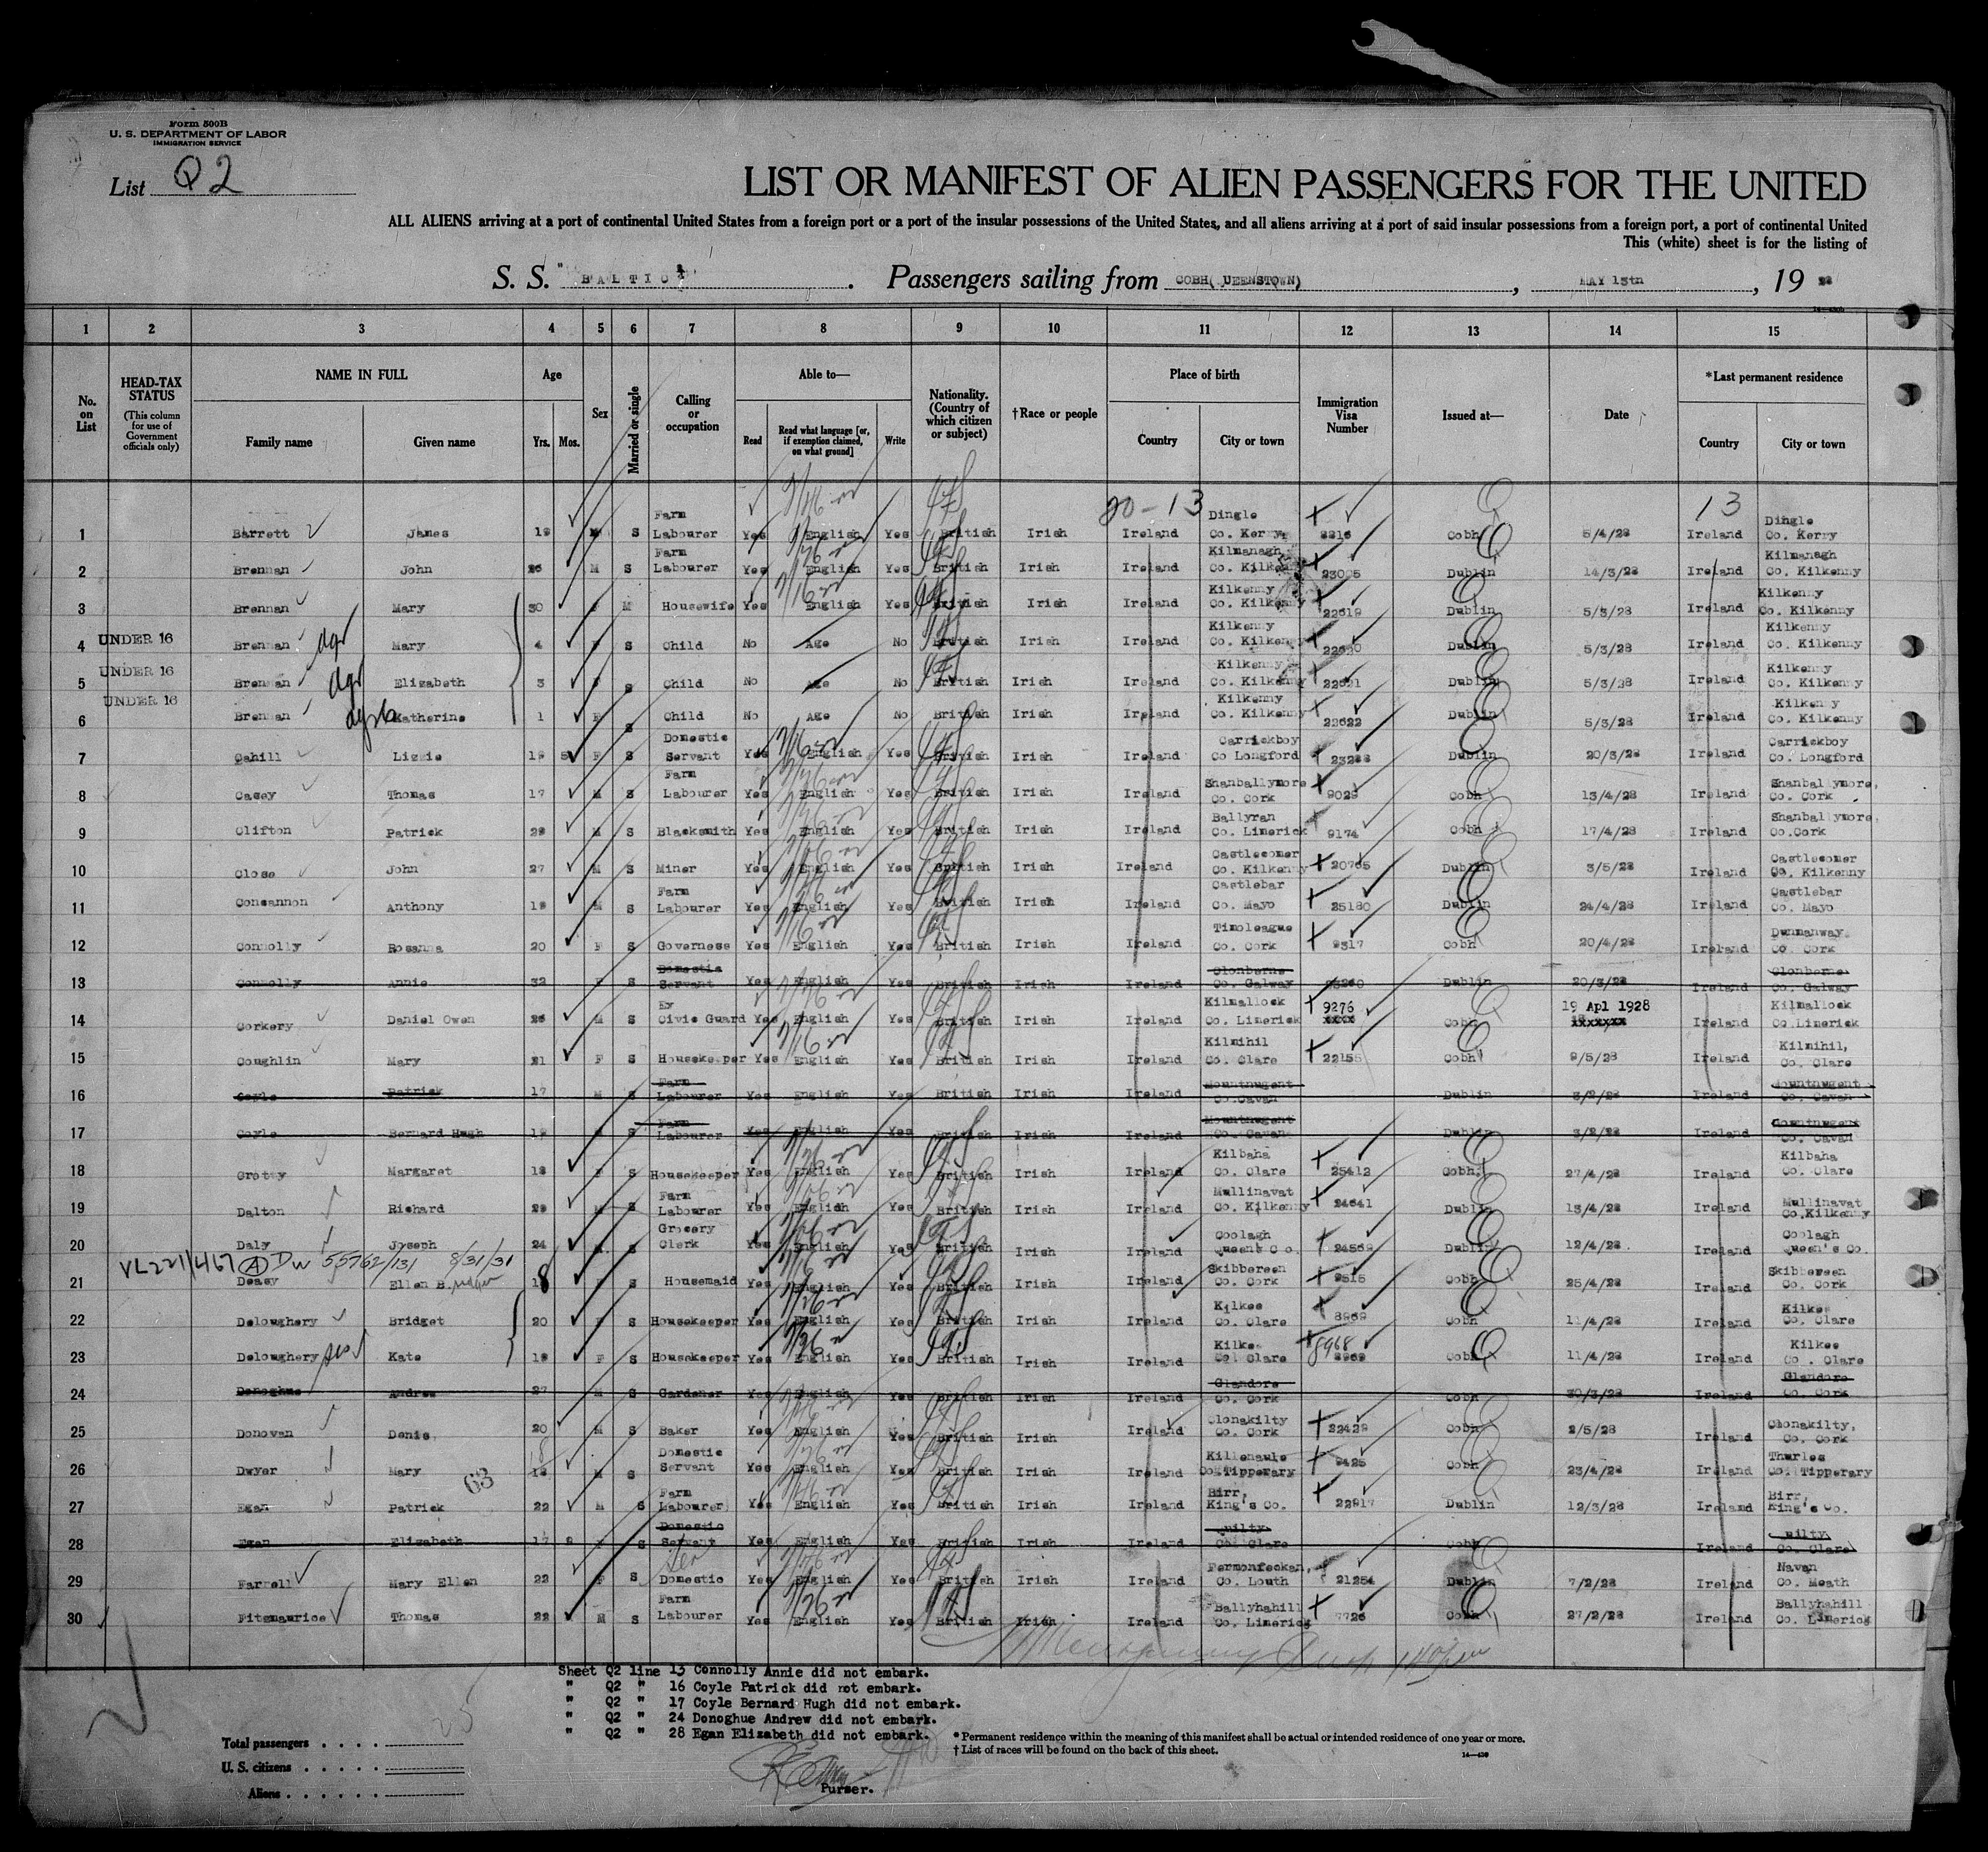 Form 500B
U. S. DEPARTMENT OF LABOR
IMMIGRATION SERVICE
List Q2
LIST OR MANIFEST OF ALIEN PASSENGERS FOR THE UNITED
ALL ALIENS arriving at a port of continental United States from a foreign port or a port of the insular possessions of the United States, and all aliens arriving at a port of said insular possessions from a foreign port, a port of continental United
This (white) sheet is for the listing of
S. S. "BALTIC" . Passengers sailing from COBH( UEENSTOWN) , MAY 13th , 19 28
1 2 3 4 5 6 7 8 9 10 11 12 13 14 15
No. on List
HEAD-TAX STATUS (This column for use of Government officials only)
NAME IN FULL Family name Given name
Age Yrs. Mos.
Sex
Married or single
Calling or occupation
Able to— Read Read what language [or, if exemption claimed, on what ground] Write
Nationality. (Country of which citizen or subject)
†Race or people
Place of birth Country City or town
Immigration Visa Number
Issued at—
Date
*Last permanent residence Country City or town
20-13 13
1 Barrett James 19 M S Farm Labourer Yes English Yes British Irish Ireland Dingle Co. Kerry Cobh 5/4/28 Ireland Dingle Co. Kerry
2 Brennan John 26 M S Farm Labourer Yes English Yes British Irish Ireland Kilmanagh Co. Kilkenny Dublin 14/3/28 Ireland Kilmanagh Co. Kilkenny
3 Brennan Mary 30 F M Housewife Yes English Yes British Irish Ireland Kilkenny Co. Kilkenny 22619 Dublin 5/3/28 Ireland Kilkenny Co. Kilkenny
4 UNDER 16 Brennan Mary 4 F S Child No Age No British Irish Ireland Kilkenny Co. Kilkenny Dublin 5/3/28 Ireland Kilkenny Co. Kilkenny
5 UNDER 16 Brennan Elizabeth 3 F S Child No Age No British Irish Ireland Kilkenny Co. Kilkenny 22621 Dublin 5/3/28 Ireland Kilkenny Co. Kilkenny
6 UNDER 16 Brennan Katherine 1 F S Child No Age No British Irish Ireland Kilkenny Co. Kilkenny 22622 Dublin 5/3/28 Ireland Kilkenny Co. Kilkenny
7 Cahill Lizzie 19 5 F S Domestic Servant Yes English Yes British Irish Ireland Carrickboy Co Longford Dublin 20/3/28 Ireland Carrickboy Co. Longford
8 Casey Thomas 17 M S Farm Labourer Yes English Yes British Irish Ireland Shanballymore Co. Cork 9029 Cobh 13/4/28 Ireland Shanballymore, Co. Cork
9 Clifton Patrick 29 M S Blacksmith Yes English Yes British Irish Ireland Ballyran Co. Limerick 9174 Cobh 17/4/28 Ireland Shanballymore, Co.Cork
10 Close John 27 M S Miner Yes English Yes British Irish Ireland Castlecomer Co. Kilkenny 20765 Dublin 3/5/28 Ireland Castlecomer Co. Kilkenny
11 Concannon Anthony 19 M S Farm Labourer Yes English Yes British Irish Ireland Castlebar Co. Mayo 25180 Dublin 24/4/28 Ireland Castlebar Co. Mayo
12 Connolly Rosanna 20 F S Governess Yes English Yes British Irish Ireland Timoleague Co. Cork 9317 Cobh 20/4/28 Ireland Dunmanway. Co. Cork
13 Connolly Annie 32 F S Domestic Servant Yes English Yes British Irish Ireland Clonberne Co. Galway Dublin 20/3/28 Ireland Clonberne Co. Galway
14 Corkery Daniel Owen 26 M S Ex Civic Guard Yes English Yes British Irish Ireland Kilmallock Co. Limerick 9276 xxxx Cobh 19 Apl 1928 xxxxxxx Ireland Kilmallock Co.Limerick
15 Coughlin Mary 21 F S Housekeeper Yes English Yes British Irish Ireland Kilmihil Co. Clare 22155 Cobh 9/5/28 Ireland Kilmihil, Co. Clare
16 Coyle Patrick 17 M S Farm Labourer Yes English Yes British Irish Ireland Mountnugent Co.Cavan Dublin 3/2/28 Ireland Mountnugent Co. Cavan
17 Coyle Bernard Hugh 19 M S Farm Labourer Yes English Yes British Irish Ireland Mountnugent Co. Cavan Dublin 3/2/28 Ireland Mountnugent Co. Cavan
18 Crotty Margaret 18 F S Housekeeper Yes English Yes British Irish Ireland Kilbaha Co. Clare 25412 Cobh. 27/4/28 Ireland Kilbaha Co. Clare
19 Dalton Richard 29 M S Farm Labourer Yes English Yes British Irish Ireland Mullinavat Co. Kilkenny 24641 Dublin 13/4/28 Ireland Mullinavat Co.Kilkenny
20 Daly Joseph 24 M S Grocery Clerk Yes English Yes British Irish Ireland Coolagh Queen's Co. 24569 Dublin 12/4/28 Ireland Coolagh Queen's Co.
VL221/467 (A) Dw 55762/131 8/31/31
21 Deasy Ellen B. 18 F S Housemaid Yes English Yes British Irish Ireland Skibbereen Co. Cork 9515 Cobh 25/4/28 Ireland Skibbereen Co. Cork
22 Deloughery Bridget 20 F S Housekeeper Yes English Yes British Irish Ireland Kilkee Co. Clare 8969 Cobh 11/4/28 Ireland Kilkee Co. Clare
23 Deloughery sis Kate 19 F S Housekeeper Yes English Yes British Irish Ireland Kilkee Co. Clare 8968 Cobh 11/4/28 Ireland Kilkee Co. Clare
24 Donoghue Andrew 27 M S Gardener Yes English Yes British Irish Ireland Glandore Co. Cork Cobh 30/3/28 Ireland Glandore Co. Cork
25 Donovan Denis 20 M S Baker Yes English Yes British Irish Ireland Clonakilty Co. Cork 22429 Cobh 2/5/28 Ireland Clonakilty, Co. Cork
26 Dwyer Mary 18 S Domestic Servant Yes English Yes British Irish Ireland Killenaule Co. Tipperary 9425 Cobh 23/4/28 Ireland Thurles Co. Tipperary
63
27 Egan Patrick 22 M S Farm Labourer Yes English Yes British Irish Ireland Birr, King's Co. 22917 Dublin 12/3/28 Ireland Birr, King's Co.
28 Egan Elizabeth 17 9 F S Domestic Servant Yes English Yes British Irish Ireland uilty Co. Clare Cobh Ireland uilty Co. Clare
29 Farrell Mary Ellen 22 F S Ser Domestic Yes English Yes British Irish Ireland Fermonfeckan, Co. Louth 21254 Dublin 7/2/28 Ireland Navan Co. Meath
30 Fitzmaurice Thomas 22 M S Farm Labourer Yes English Yes British Irish Ireland Ballyhahill Co. Limerick 7726 Cobh 27/2/28 Ireland Ballyhahill Co. Limerick
Sheet Q2 line 13 Connolly Annie did not embark.
" Q2 " 16 Coyle Patrick did not embark.
" Q2 " 17 Coyle Bernard Hugh did not embark.
" Q2 " 24 Donoghue Andrew did not embark.
" Q2 " 28 Egan Elizabeth did not embark.
Purser.
Total passengers . . . . 25
U. S. citizens . . . . .
Aliens . . . . . .
* Permanent residence within the meaning of this manifest shall be actual or intended residence of one year or more.
† List of races will be found on the back of this sheet.
14—430